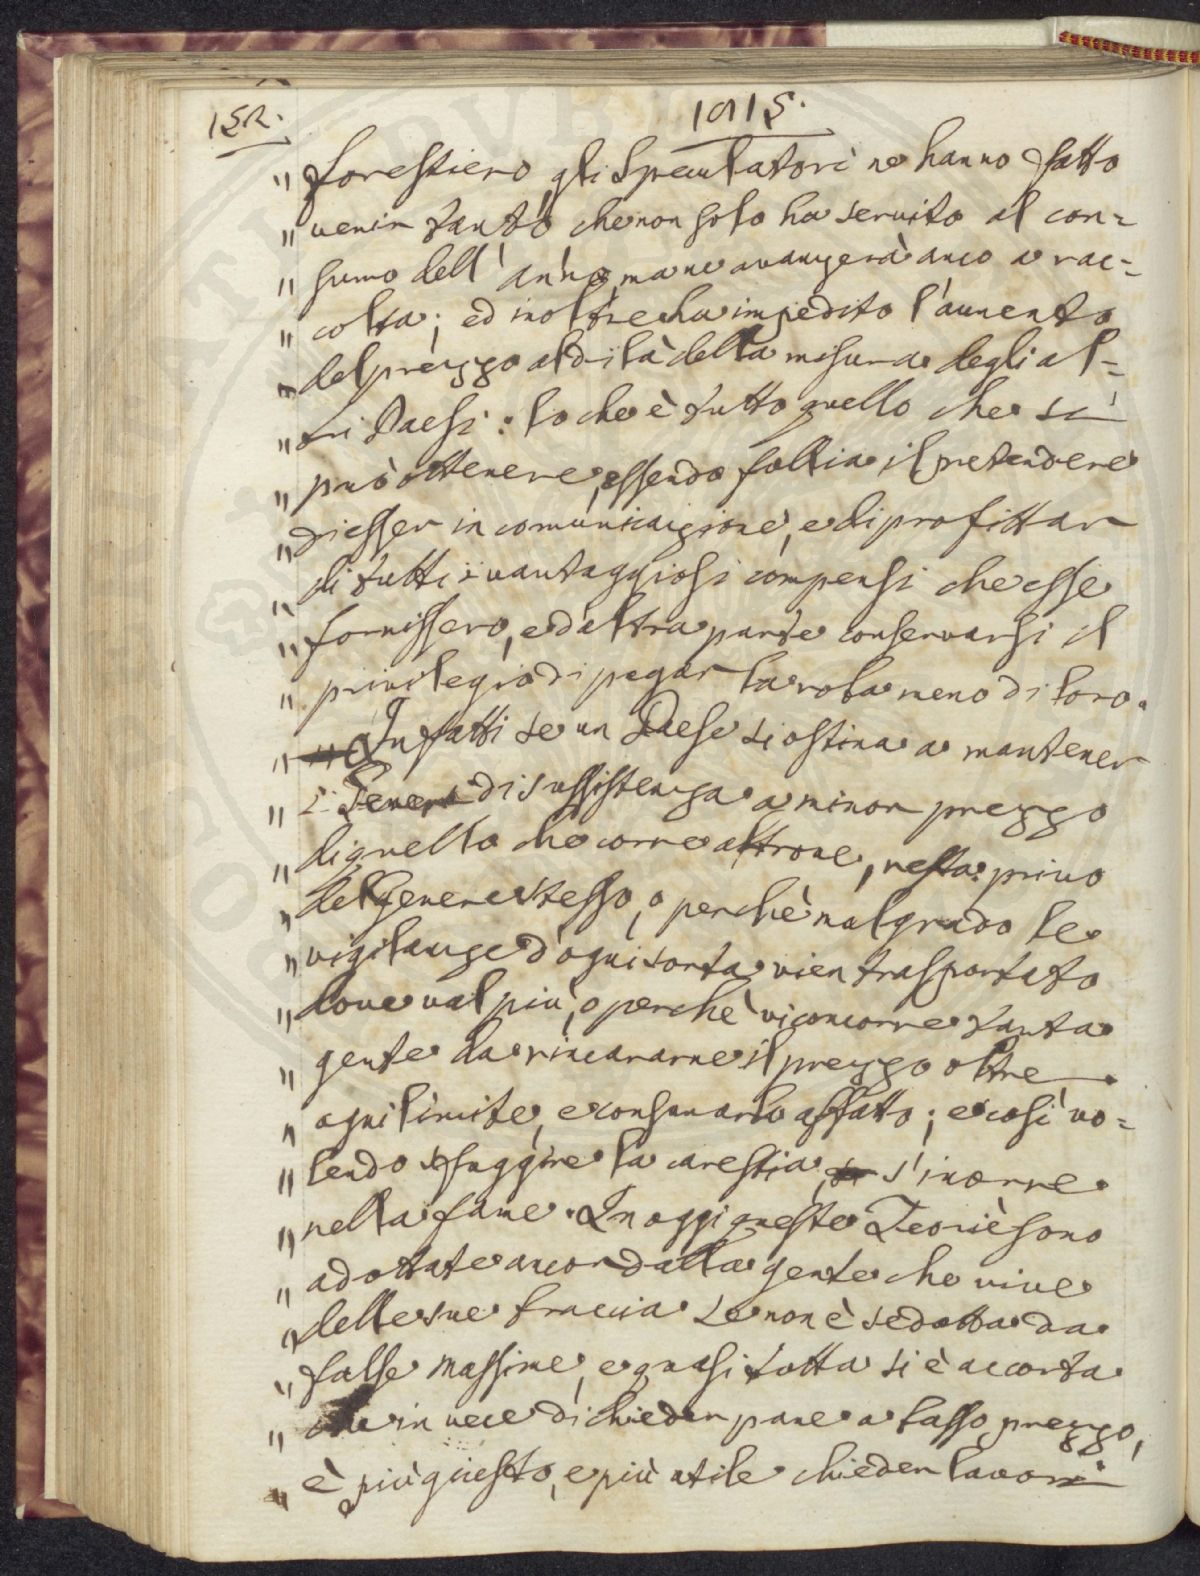 152.
1815.
" forestiero, gli Speculatori ne hanno fatto
" venir tanto che non solo ha servito al con=
" sumo dell'anno, ma ne avanzerà anco a rac=
" colta; ed inoltre ha impedito l'aumento
" del prezzo al di là della misura degli al=
" tri Paesi: lo che è tutto quello che si
" può ottenere, essendo follia il pretendere
" di esser in comunicazione, e di profittar
" di tutti i vantaggiosi compensi che esse
" fornissero, e d'altra parte conservarsi il
" privilegio di pagar la roba meno di loro.
" Infatti se un Paese si ostina a mantener
" i Generi di sussistenza a minor prezzo
" di quello che corre altrove, resta privo
" del Genere stesso, o perchè malgrado le
" vigilanze d'ogni sorta vien trasportato
" dove val più, o perchè vi concorre tanta
" gente da rincararne il prezzo oltre
" ogni limite, e consumarlo affatto; e così vo=
" lendo sfuggire la carestia, s'incorre
" nella fame. In oggi queste Teorie sono
" adottate ancor dalla gente che vive
" delle sue braccia se non è sedotta da
" false massime, e quasi tutta si è accorta
" che in vece di chieder pane a basso prezzo,
" è più giusto, e più utile chieder lavori